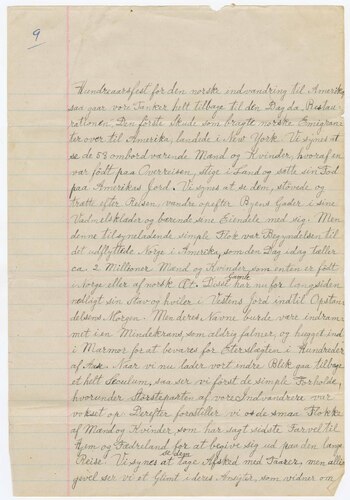 9
Hundreaarsfest for den norske indvandring til Amerika
saa gaar vore Tanker helt tilbage til den Dag da Restau-
rationen. Den første Skude som bragte norske Emigran-
ter over til Amerika, landede i New York. Vi synes at
se de 53 ombord varende Mænd og Kvinder, hvoraf en
var født paa Overreisen, stige i Land og sætte sin Fod
paa Amerikas Jord. Vi synes at se dem, støvede og
trætte efter Reisen, vandre opefter Byens Gader i sine
Vadmelsklæder og bærende sine Eiendele med sig. Men
denne tilsyneladende simple Flok var Begyndelsen til
det udflyttede Norge i Amerika, som den Dag idag tæller
ca. 2 Millioner Mænd og Kvinder som enten er født
i Norge eller af norsk Æt. Disse har nu for længesiden
nedlagt sin Stav og hviler i Vestens Jord indtil Opstan-
delsens Morgen. Men deres Navne burde være indram-
met i en Mindekrans, som aldrig falmer, og hugget ind
i Marmor for at bevares for Efterslægten i Hundreder
af Aar. Naar vi nu lader vort indre Blik gaa tilbage
et helt Seculum, saa ser vi først de simple Forholde,
hvorunder Størsteparten af vore Indvandrere var
vokset op. Derefter forestiller vi os de smaa Flokke
af Mænd og Kvinder som har sagt sidste Farvel til
Hjem og Fædreland for at begive sig ud paa den lange
Reise. Vi synes at se dem tage Afsked med Taarer, men allige-
gevel ser vi et Glimt i deres Ansigter, som vidner om